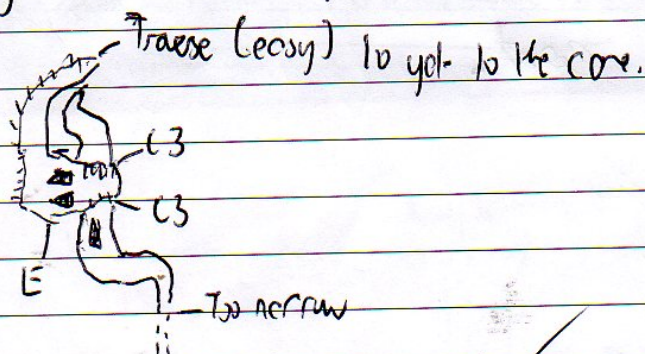 Traverse (easy) to get to the cave.
C3
C3
E
Too narrow